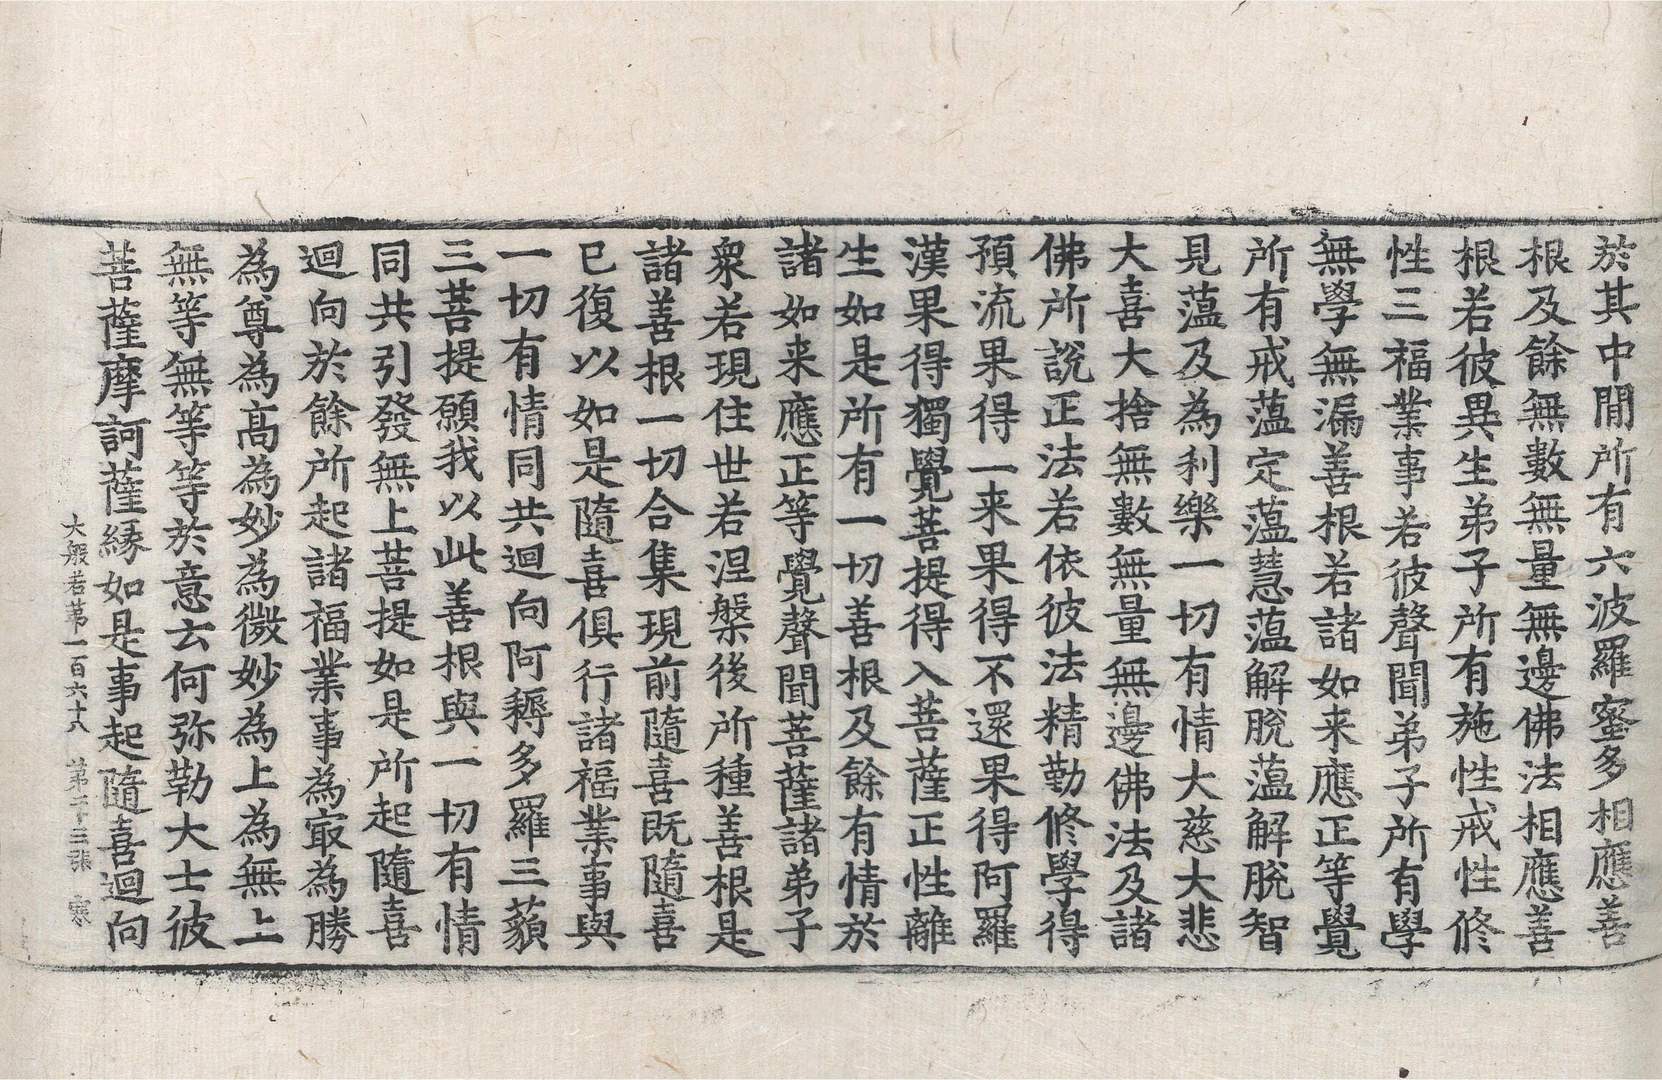 於其中間所有六波羅蜜多相應善
根及餘無數無量無邊佛法相應善
根若彼異生弟子所有施性戒性修
性三福業事若彼聲聞弟子所有學
無學無漏善根若諸如来應正等覺
所有戒蕰定蕰慧蕰解脫蕰解脫智
見蕰及為利樂一切有情大慈大悲
大喜大捨無數無量無邊佛法及諸
佛所說正法若依彼法精勤修學得
預流果得一来果得不還果得阿羅
漢果得獨覺菩提得入菩薩正性離
生如是所有一切善根及餘有情於
諸如来應正等覺聲聞菩薩諸弟子
衆若現住世若涅槃後所種善根是
諸善根一切合集現前隨喜既隨喜
已復以如是隨喜俱行諸福業事與
一切有情同共迴向阿耨多羅三藐
三菩提願我以此善根與一切有情
同共引發無上菩提如是所起隨喜
迴向於餘所起諸福業事為㝡為勝
為尊為高為妙為微妙為上為無上
無等無等等於意云何弥勒大士彼
菩薩摩訶薩緣如是事起隨喜迴向
大般若第一百六十八 第十三張 寒